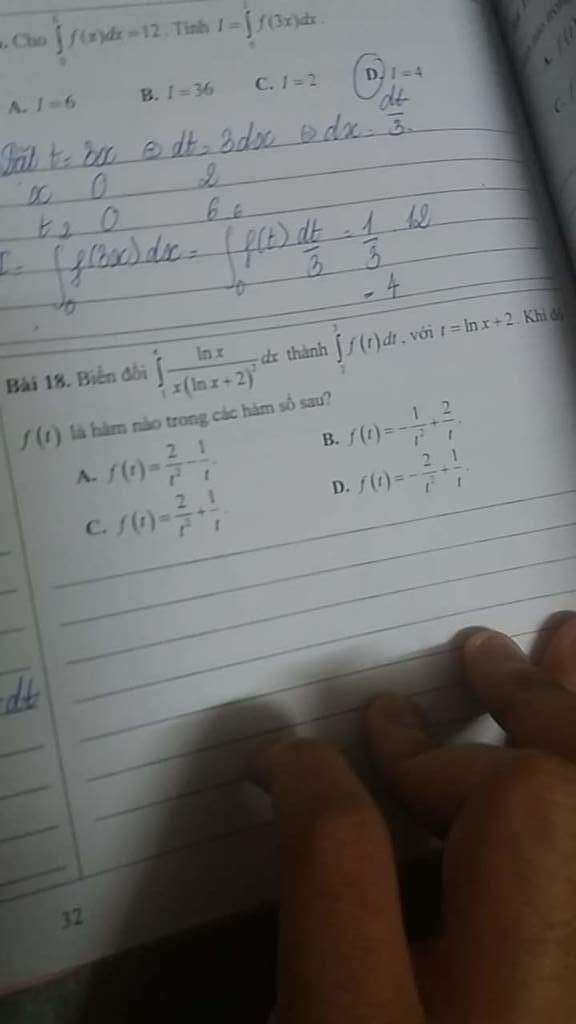 . Cho ∫ f(x)dx = 12. Tính I = ∫ f(3x)dx.
A. I = 6 B. I = 36 C. I = 2 D. I = 4
Đặt t = 3x ⇔ dt = 3dx ⇔ dx = dt/3.
x 0 2
t 0 6
I = ∫₀ f(3x)dx = ∫₀ f(t) dt/3 = 1/3 . 12
= 4
Bài 18. Biến đổi ∫₁ ln x / x(ln x + 2)² dx thành ∫₂³ f(t)dt, với t = ln x + 2. Khi đó
f(t) là hàm nào trong các hàm số sau?
A. f(t) = 2/t² − 1/t. B. f(t) = −1/t² + 2/t.
C. f(t) = 2/t² + 1/t. D. f(t) = −2/t² + 1/t.
dt
32